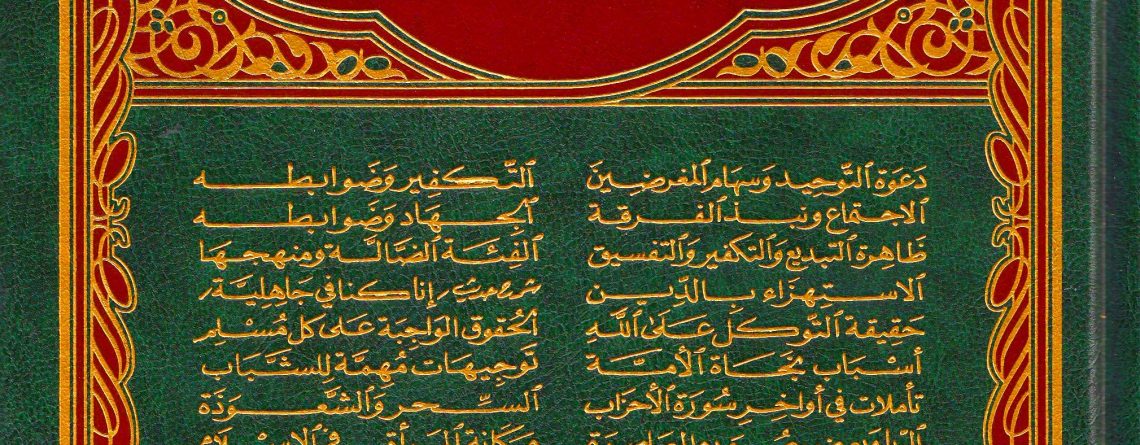 دَعَوَة التَّوحِيد وَسِهَام المغرضِينَ
الاجتماع ونبذ الفرقة
ظَاهِرة التبديع وَالتكفير وَالتفسيق
الاستهزاء بالدِّين
حَقِيقة التَّوكل عَلَى اللَّه
أسْبَاب نجَاة الأمَّة
تأملات في أواخِر سُورَة الأحزَاب
التَّكفِير وَضَوابطه
الجِهَاد وَضَوابطه
الفِئَة الضَّالَّة ومنهجهَا
شرح حديث / إنا كنا في جَاهِليَّة /
الحُقوق الوَاجِبَة عَلى كل مُسْلِم
تَوجِيهَات مُهمَّة لِلشَّبَاب
السِّحر وَالشَّعْوَذَة
مكَانة المرأة في الإسْلَام